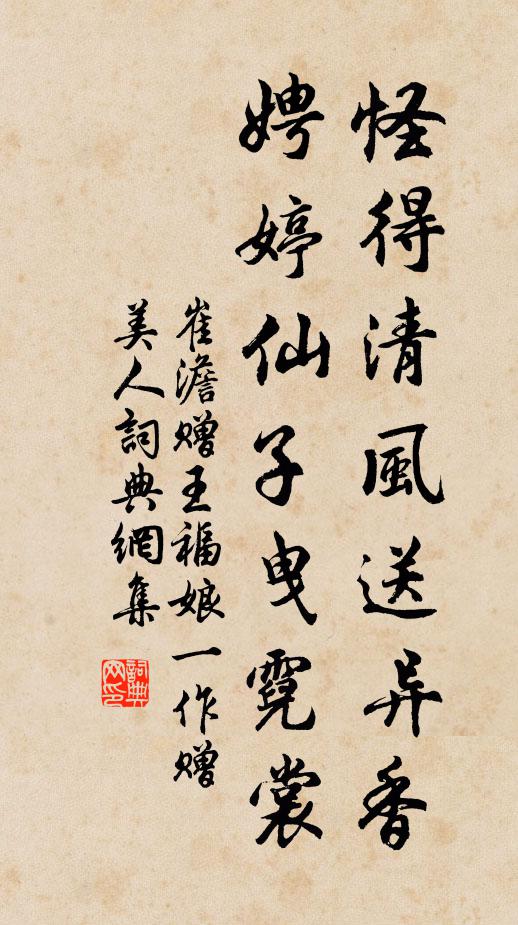 怪得清風送异香
娉婷仙子曳霓裳
崔澹赠王福娘一作赠
美人詞典網集
詞典
网印